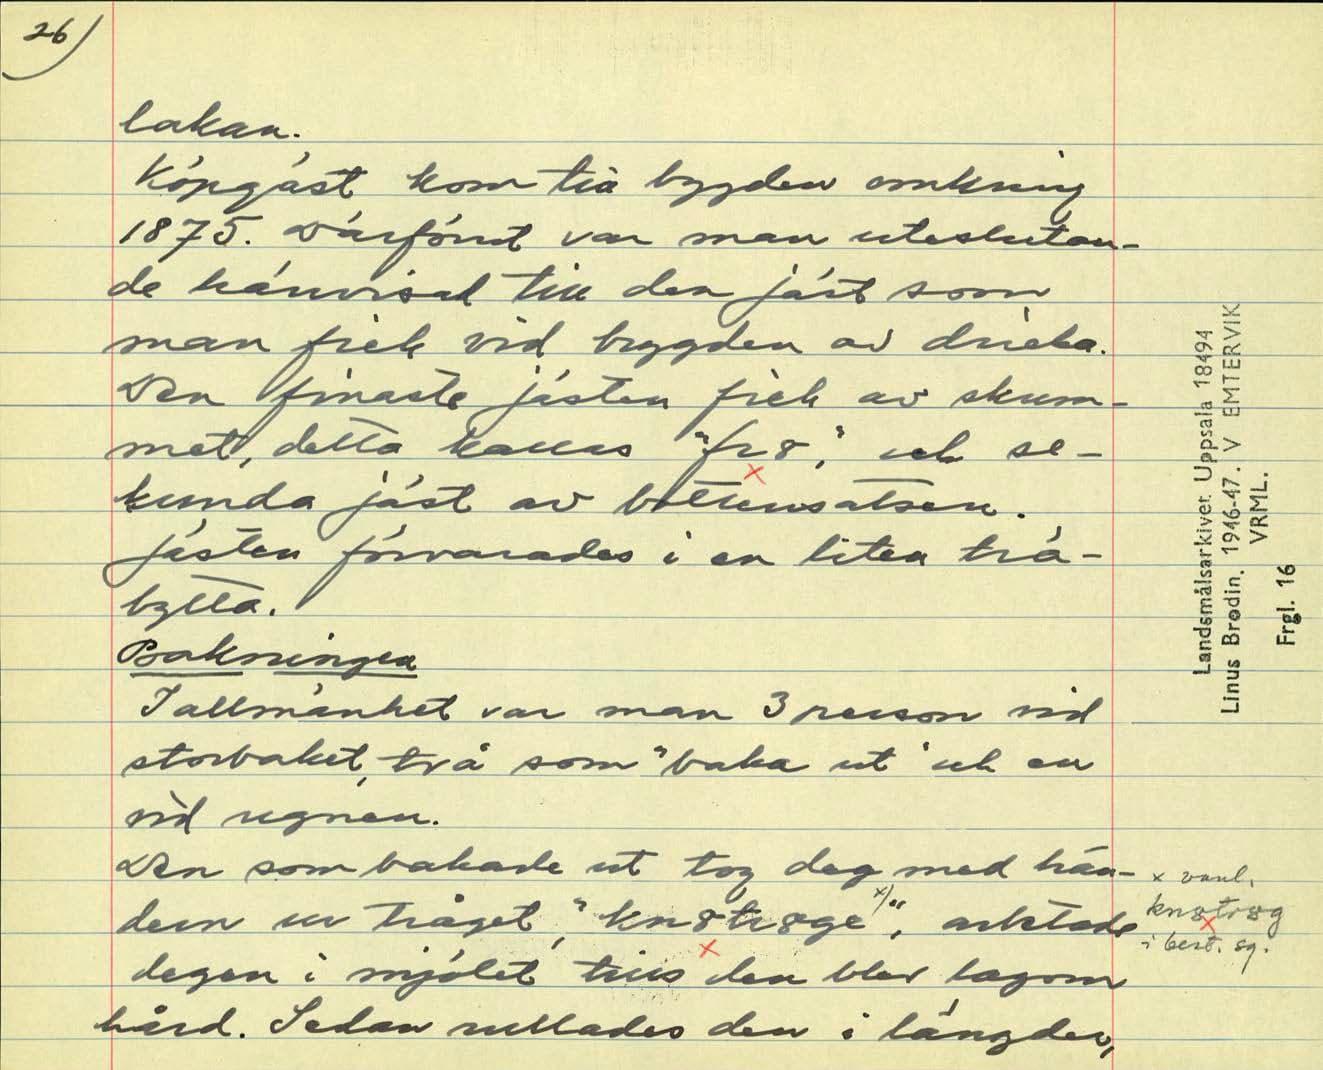 26)
lakan.
Köpgäst kom till bygden omkring
1875. Därförut var man uteslutan-
de hänvisad till den jäst som
man fick vid bryggden av dricka.
Den finaste jästen fick av skum-
met, detta kallas "fr8," och se-
kunda jäst av bottensatsen.
Jästen förvarades i en liten trä-
bytta.
Bakningen
I allmänhet var man 3 person vid
storbaket, två som "baka ut" och en
vid ugnen.
Den som bakade ut tog deg med hän-
dern ur tråget, "kn8tr8ge x/", arktade
degen i mjölet tills den blev lagom
hård. Sedan rullades den i längder,
x vanl.
kn8tr8g
i best. sg.
Landsmålsarkivet Uppsala 18494
Linus Brodin. 1946-47. V EMTERVIK
VRML.
Frgl. 16